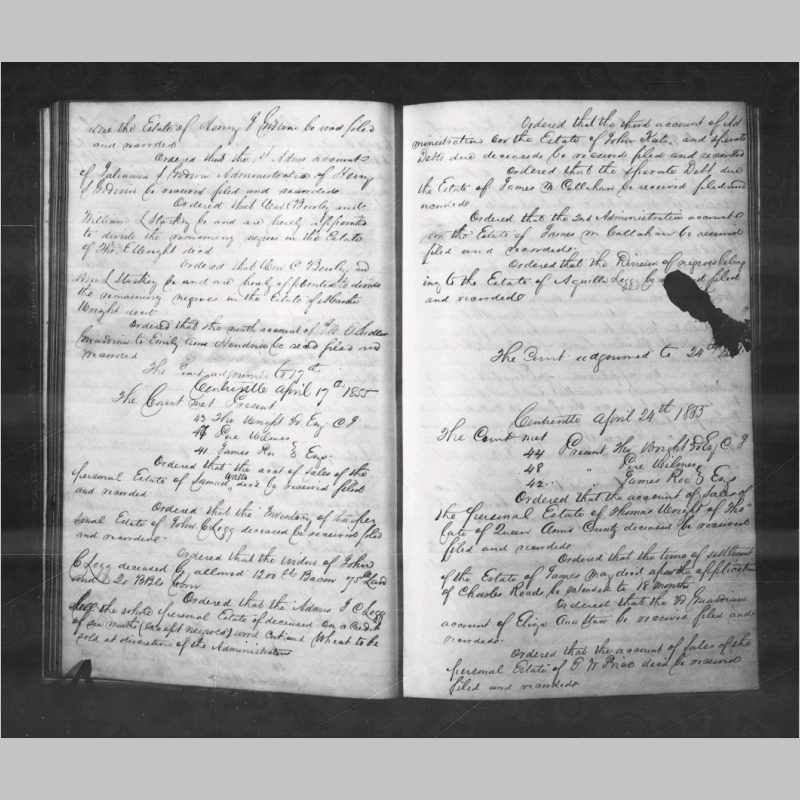 the Estate of Henry be read filed
and recorded
Ordered that the 1st Admn account
of Administratrix of Henry
be received filed and recorded
Ordered that Wm C Bewley and
William L Starkey be and are hereby appointed
to divide the remaining negroes in the Estate
of Tho. E Wright decd
Ordered that Wm C Bewley and
Wm L Starkey be and are hereby appointed to divide
the remaining negroes in the Estate of
Wright
Ordered that the ninth account of
Guardian to Emily Ann be read filed and
recorded
The Court adjourned to 17th
Centreville April 17th 1855
The Court met Present
43 Tho Wright Fr Esq C J
47 Pere Wilmer
41 James Roe } Esqs
Ordered that the acct of sales of the
personal Estate of Samuel Watts decd be received filed
and recorded
Ordered that the Inventory of the per
sonal Estate of John C Legg deceased be received filed
and recorded
Ordered that the widow of John
C Legg deceased be allowed 1200 lb Bacon 75 lb Lard
and 20 Bbls Corn
Ordered that the Admr J C Legg
sell the whole personal Estate of deceased on a Credit
of six months (except negroes) wood Cut and Wheat to be
sold at discretion of the Administrator
Ordered that the third account of Ad
ministration on the Estate of John and sperate
Debts due deceased be received filed and recorded
Ordered that the sperate Debts due
the Estate of James M Callahan be received filed and
recorded
Ordered that the 2nd Administration account
on the Estate of James M Callahan be received
filed and recorded
Ordered that the Division of negroes belong
ing to the Estate of Aquilla Legg be filed
and recorded
The Court adjourned to 24th
Centreville April 24th 1855
The Court met
44 Present Tho Wright Fr Esq C J
48 " Pere Wilmer
42 " James Roe } Esqs
Ordered that the account of Sales of
the personal Estate of Thomas Wright of Tho
late of Queen Anns County deceased be received
filed and recorded
Ordered that the time of settlement
of the Estate of James May decd upon the application
of Charles Roads be extended to 18 months
Ordered that the Guardian
account of Eliza Ann be received filed and
recorded.
Ordered that the account of Sales of the
personal Estate of Price decd be received
filed and recorded